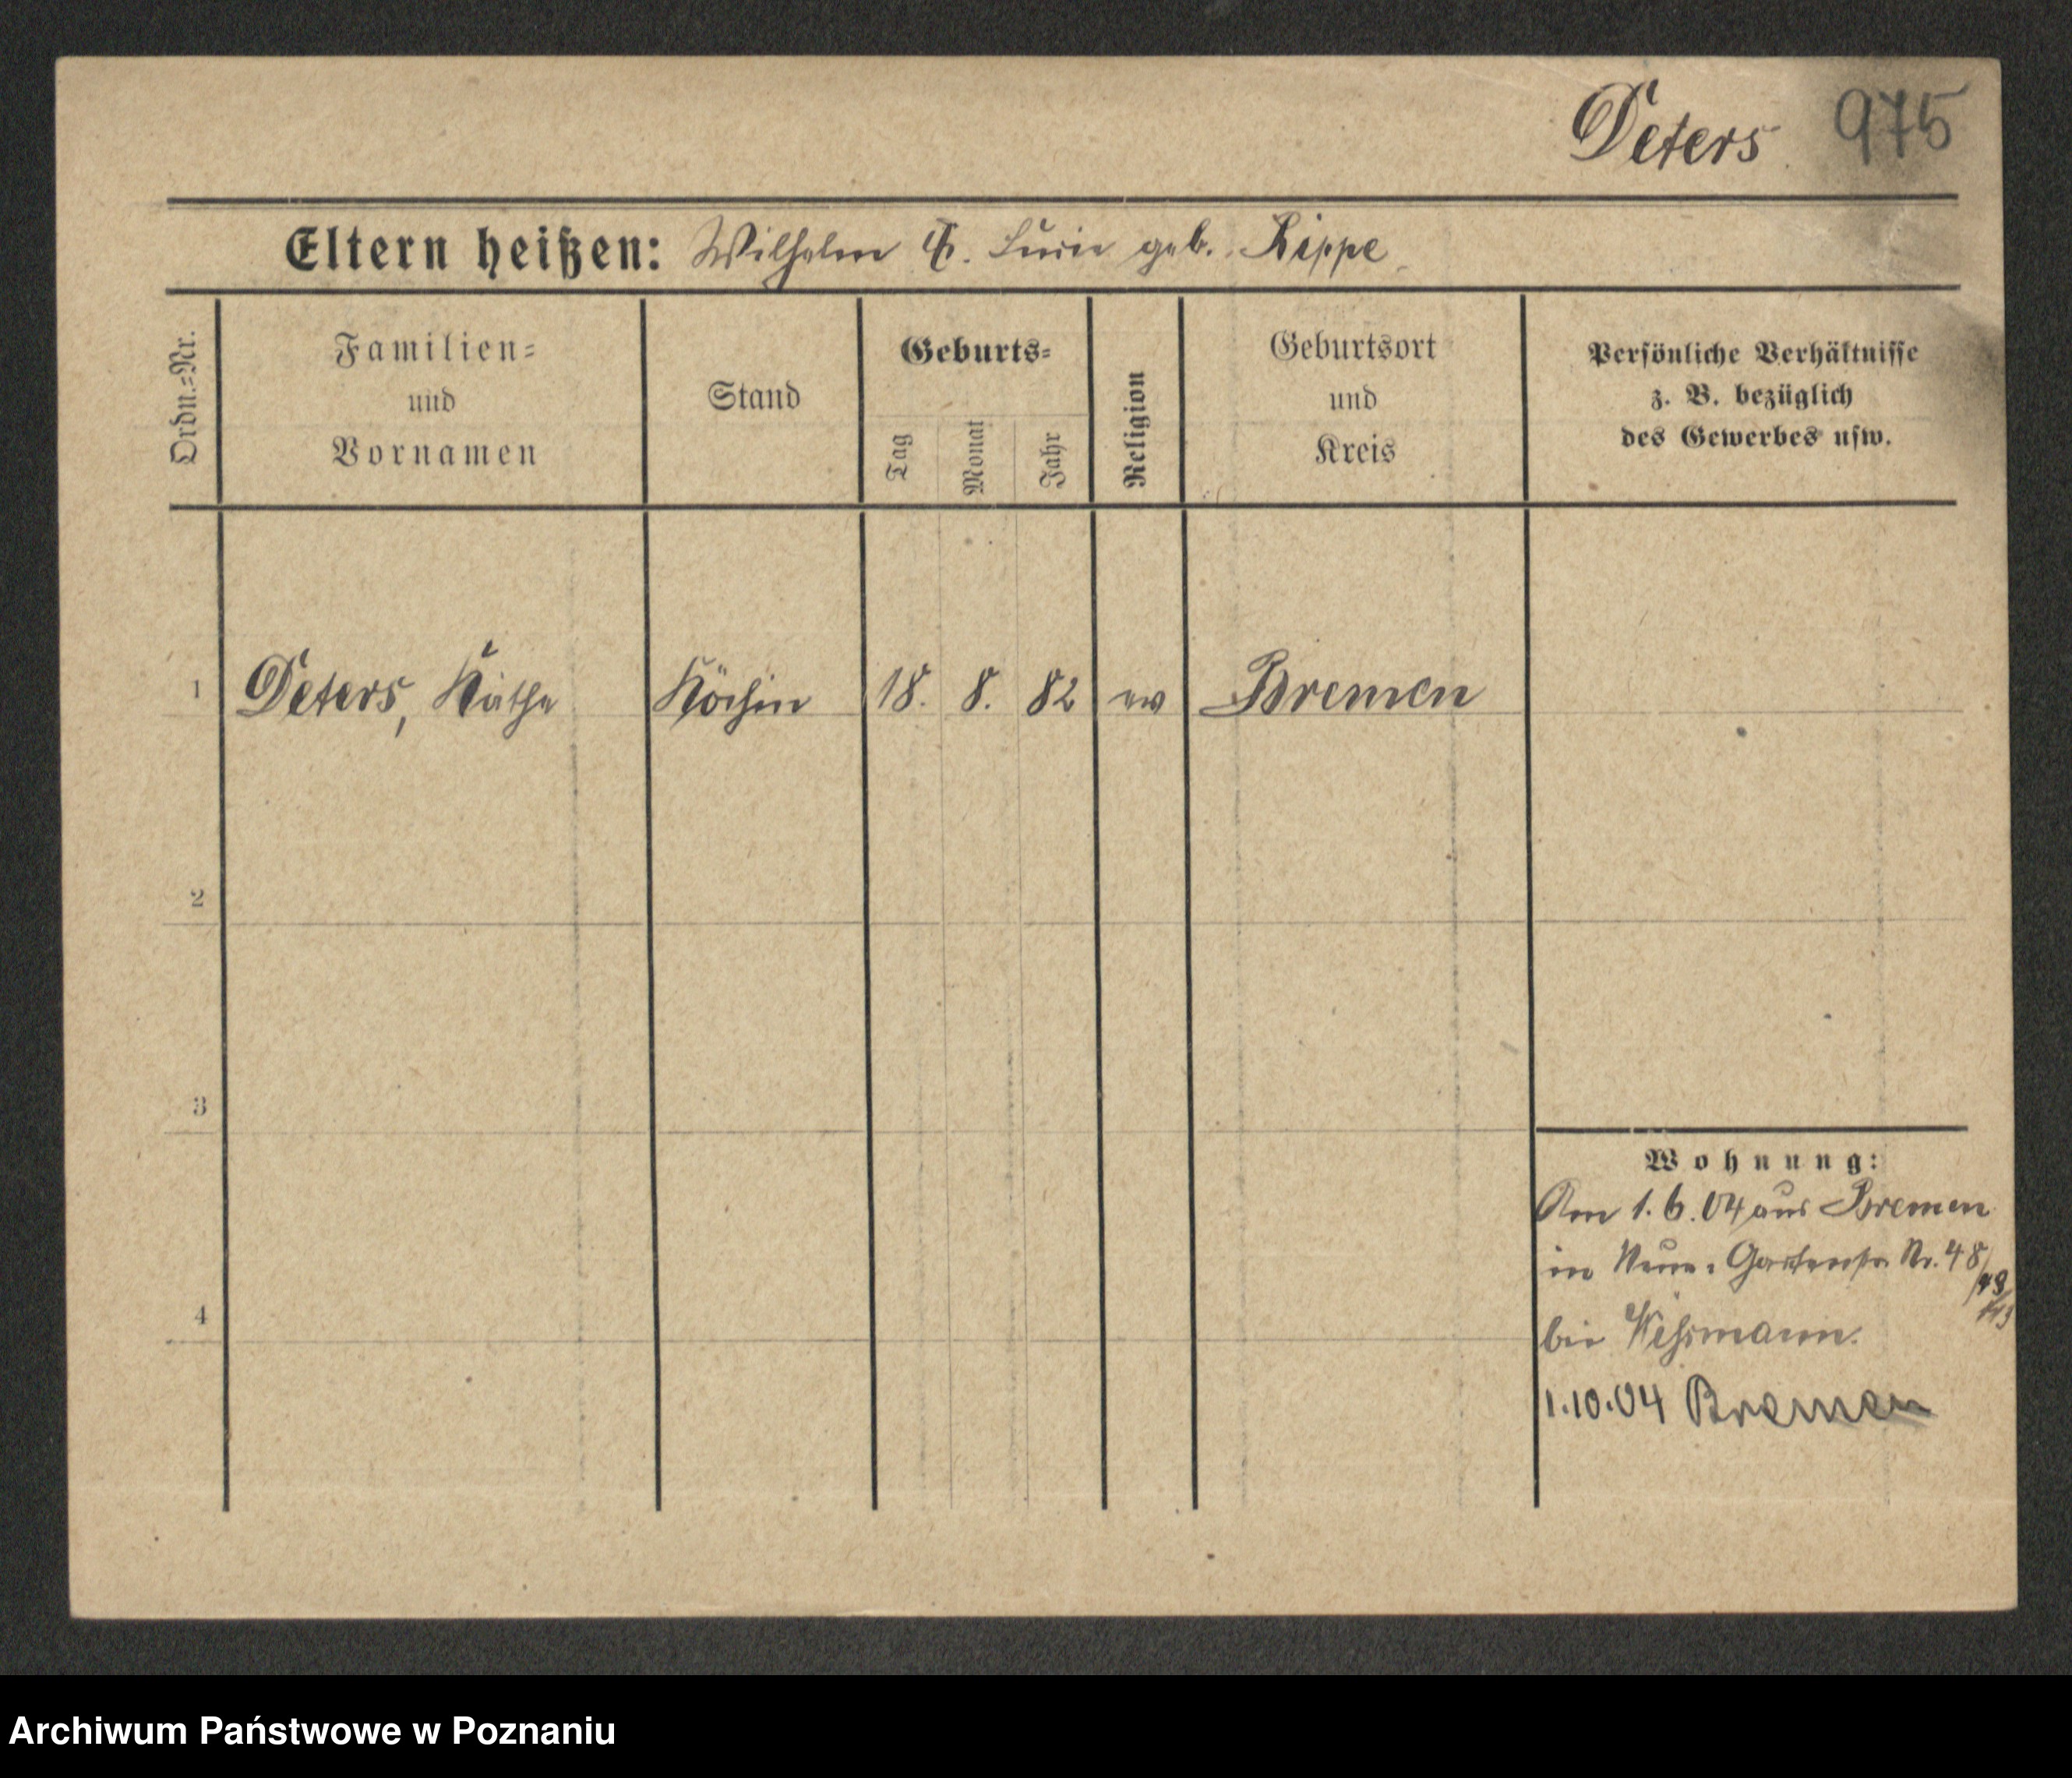 Deters 975
Eltern heißen: Wilhelm geb. Rippe
Ordn.=Nr.
Familien=
und
Vornamen
Stand
Geburts=
Tag
Monat
Jahr
Religion
Geburtsort
und
Kreis
Persönliche Verhältnisse
z. B. bezüglich
des Gewerbes usw.
1 Deters, Käthe Köchin 18. 8. 82 ev Bremen
2
3
4
Wohnung:
Am 1. 6. 04 aus Bremen
in Gartenstr. Nr. 48
bei
1.10.04 Bremen
Archiwum Państwowe w Poznaniu